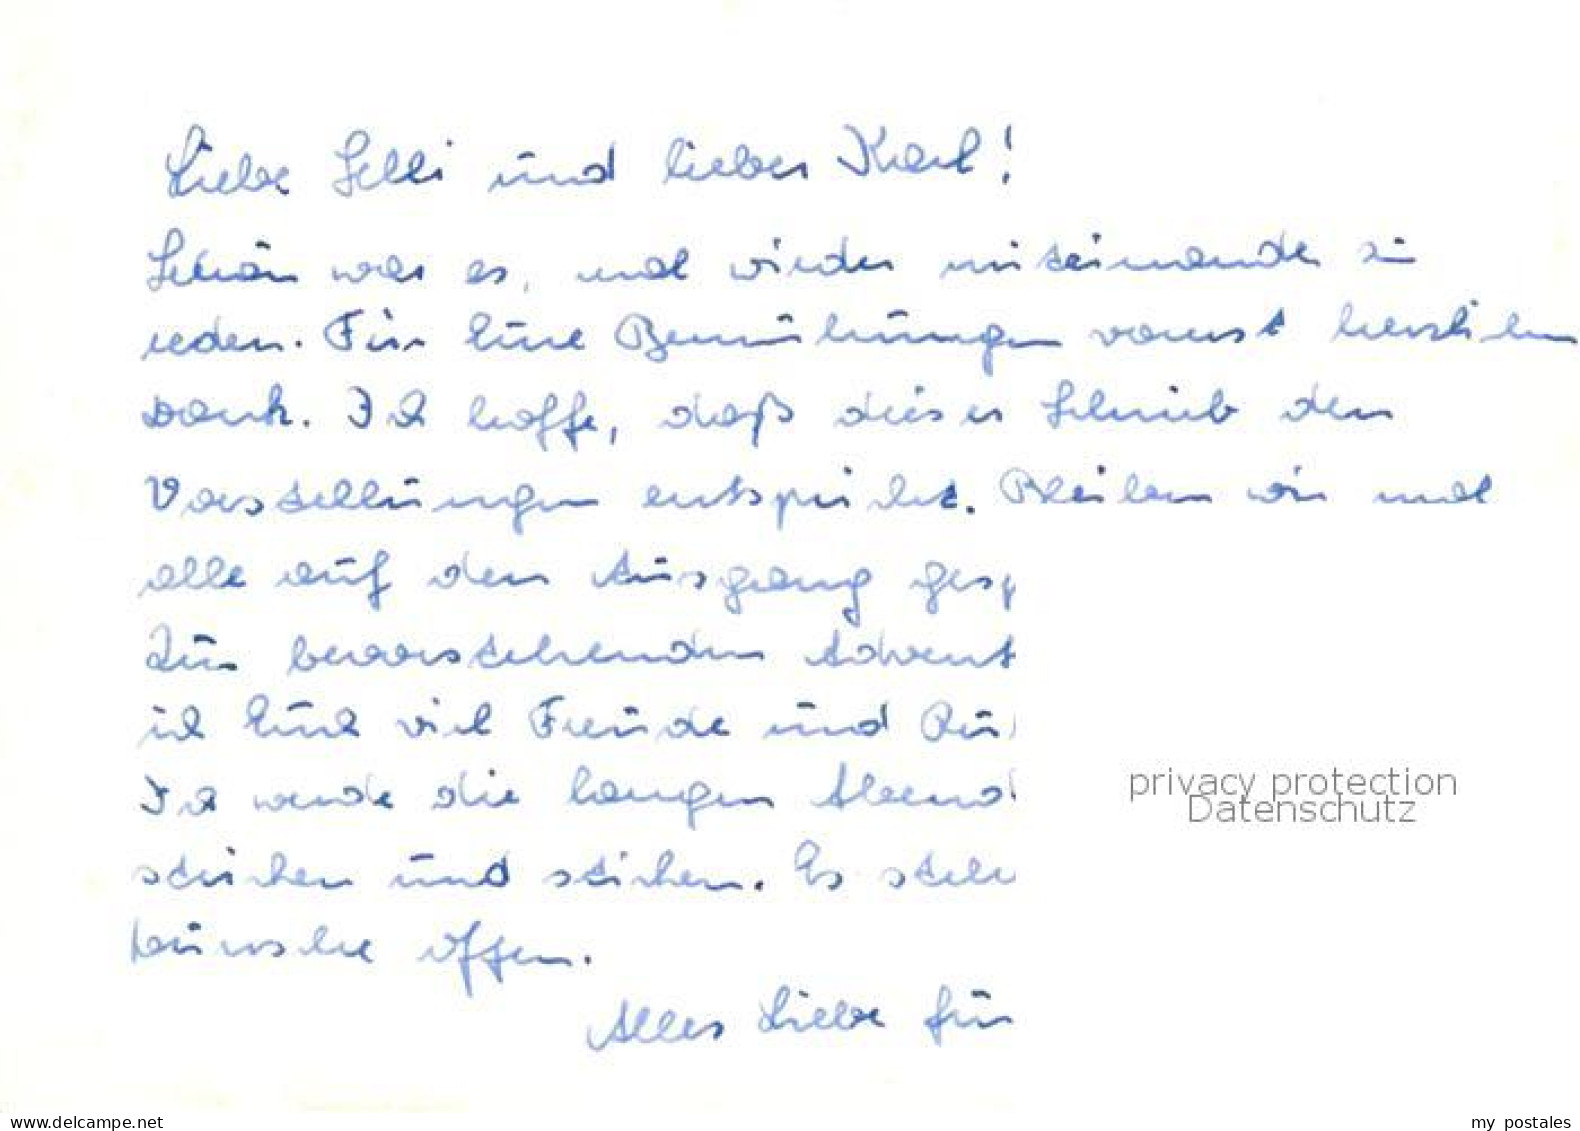 Liebe Selli und lieber Karl!
Schön war es, mal wieder miteinander zu
reden. Für Eure Bemühungen vorerst herzlichen
Dank. Ich hoffe, daß dieser Schrieb den
Vorstellungen entspricht. Bleiben wir mal
alle auf den Ausgang gesp
Zur bevorstehenden Advent
ich Euch viel Freude und Ruh
Ich werde die langen Abend
stricken und sticken. Es stehe
wünsche offen.
Alles Liebe für
privacy protection
Datenschutz
www.delcampe.net
my postales